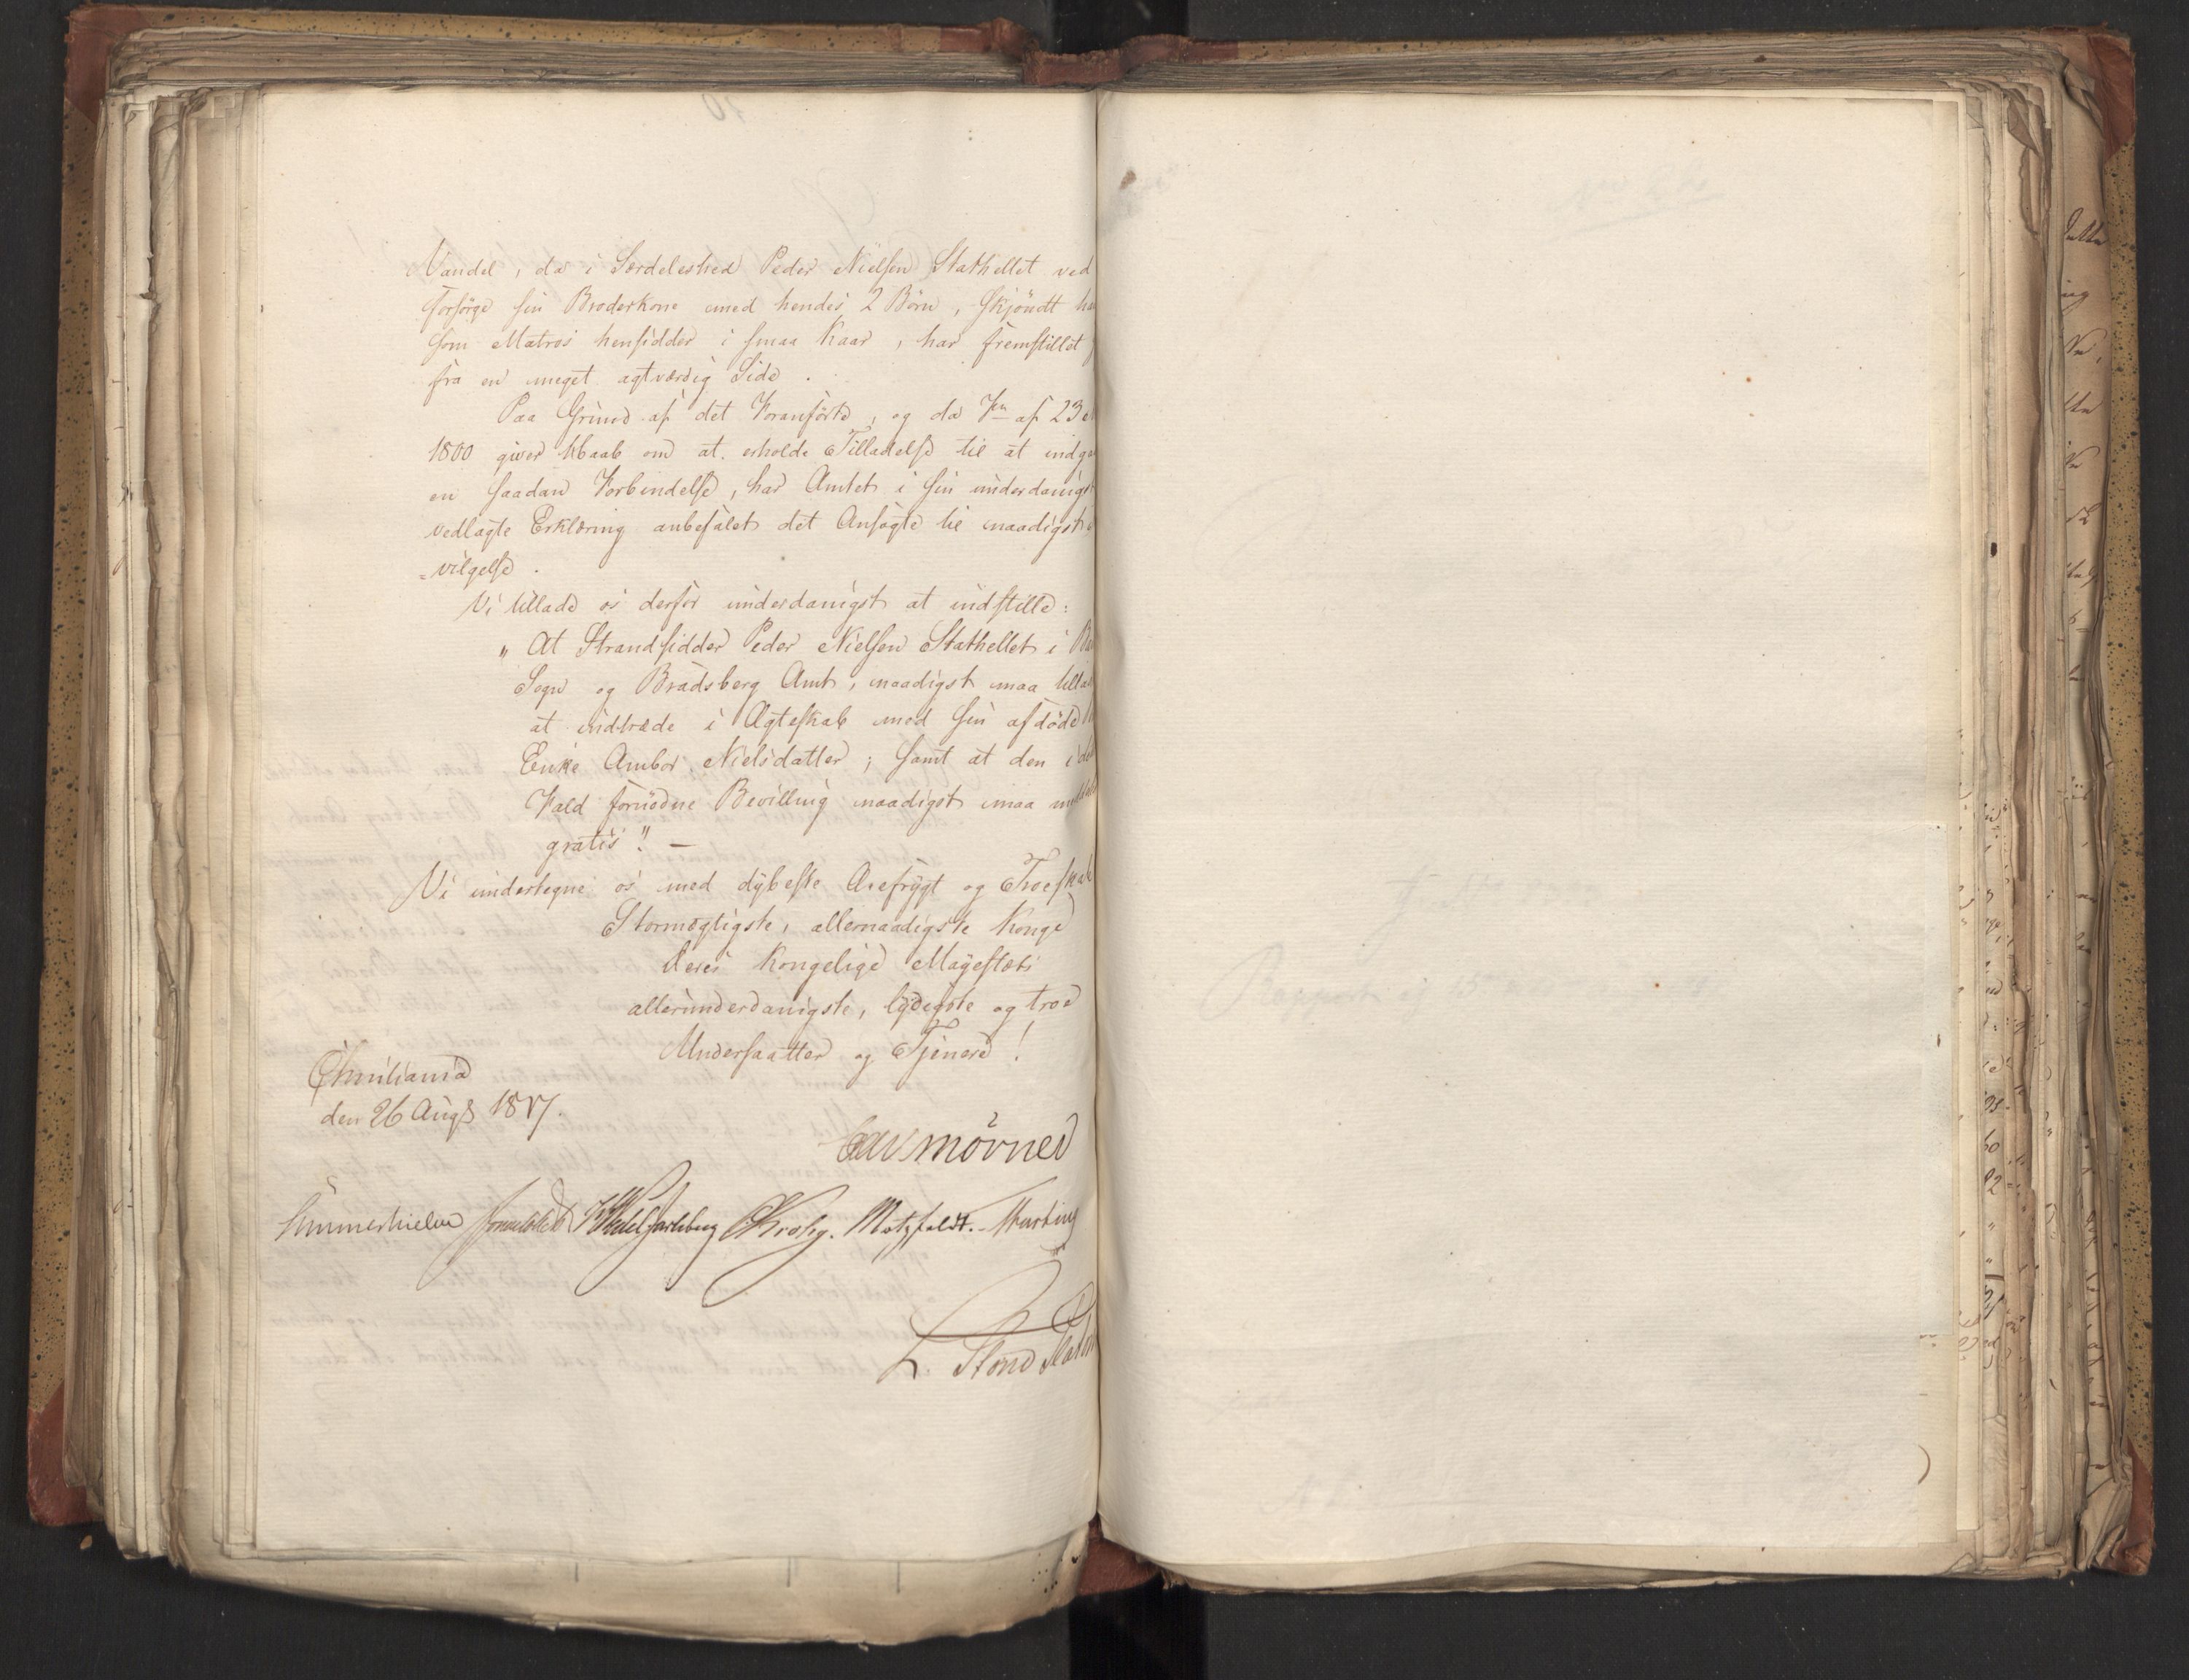 Vandel, da i Særdeleshed Peder Nielsen Stathellet ved
forsørge sin Broderkone med hendes 2 Børn, skjøndt ha
som Matros hensidder i smaa Kaar, har fremstillet
fra en meget agtværdig Side.
Paa Grund af det Foranførte, og da Fr af 23
1800 giver Haab om at erholde Tilladelse til at indga
en saadan Forbindelse, har Amtet i sin underdanigst
vedlagte Erklæring anbefalet det Ansøgte til naadigst
=vilgelse.
Vi tillade os derfor underdanigst at indstille:
" At Strandsidder Peder Nielsen Stathellet i Ba
Sogn og Bradsberg Amt, naadigst maa tillad
at indtræde i Ægteskab med sin afdøde
Enke Ambor Nielsdatter; samt at den i det
Fald fornødne Bevilling naadigst maa meddeles
gratis". —
Vi undertegne os med dybeste Ærefrygt og Troeskab
Stormægtigste, allernaadigste Konge
Deres Kongelige Mayestæts
allerunderdanigste, lydigste og troe
Undersaatter og Tjenere!
Christiania
den 26 Augs 1817.
Carl Mörner
Sommerhielm JWedelJarlsberg CKrohg. Motzfeldt.
L Stoud Platou